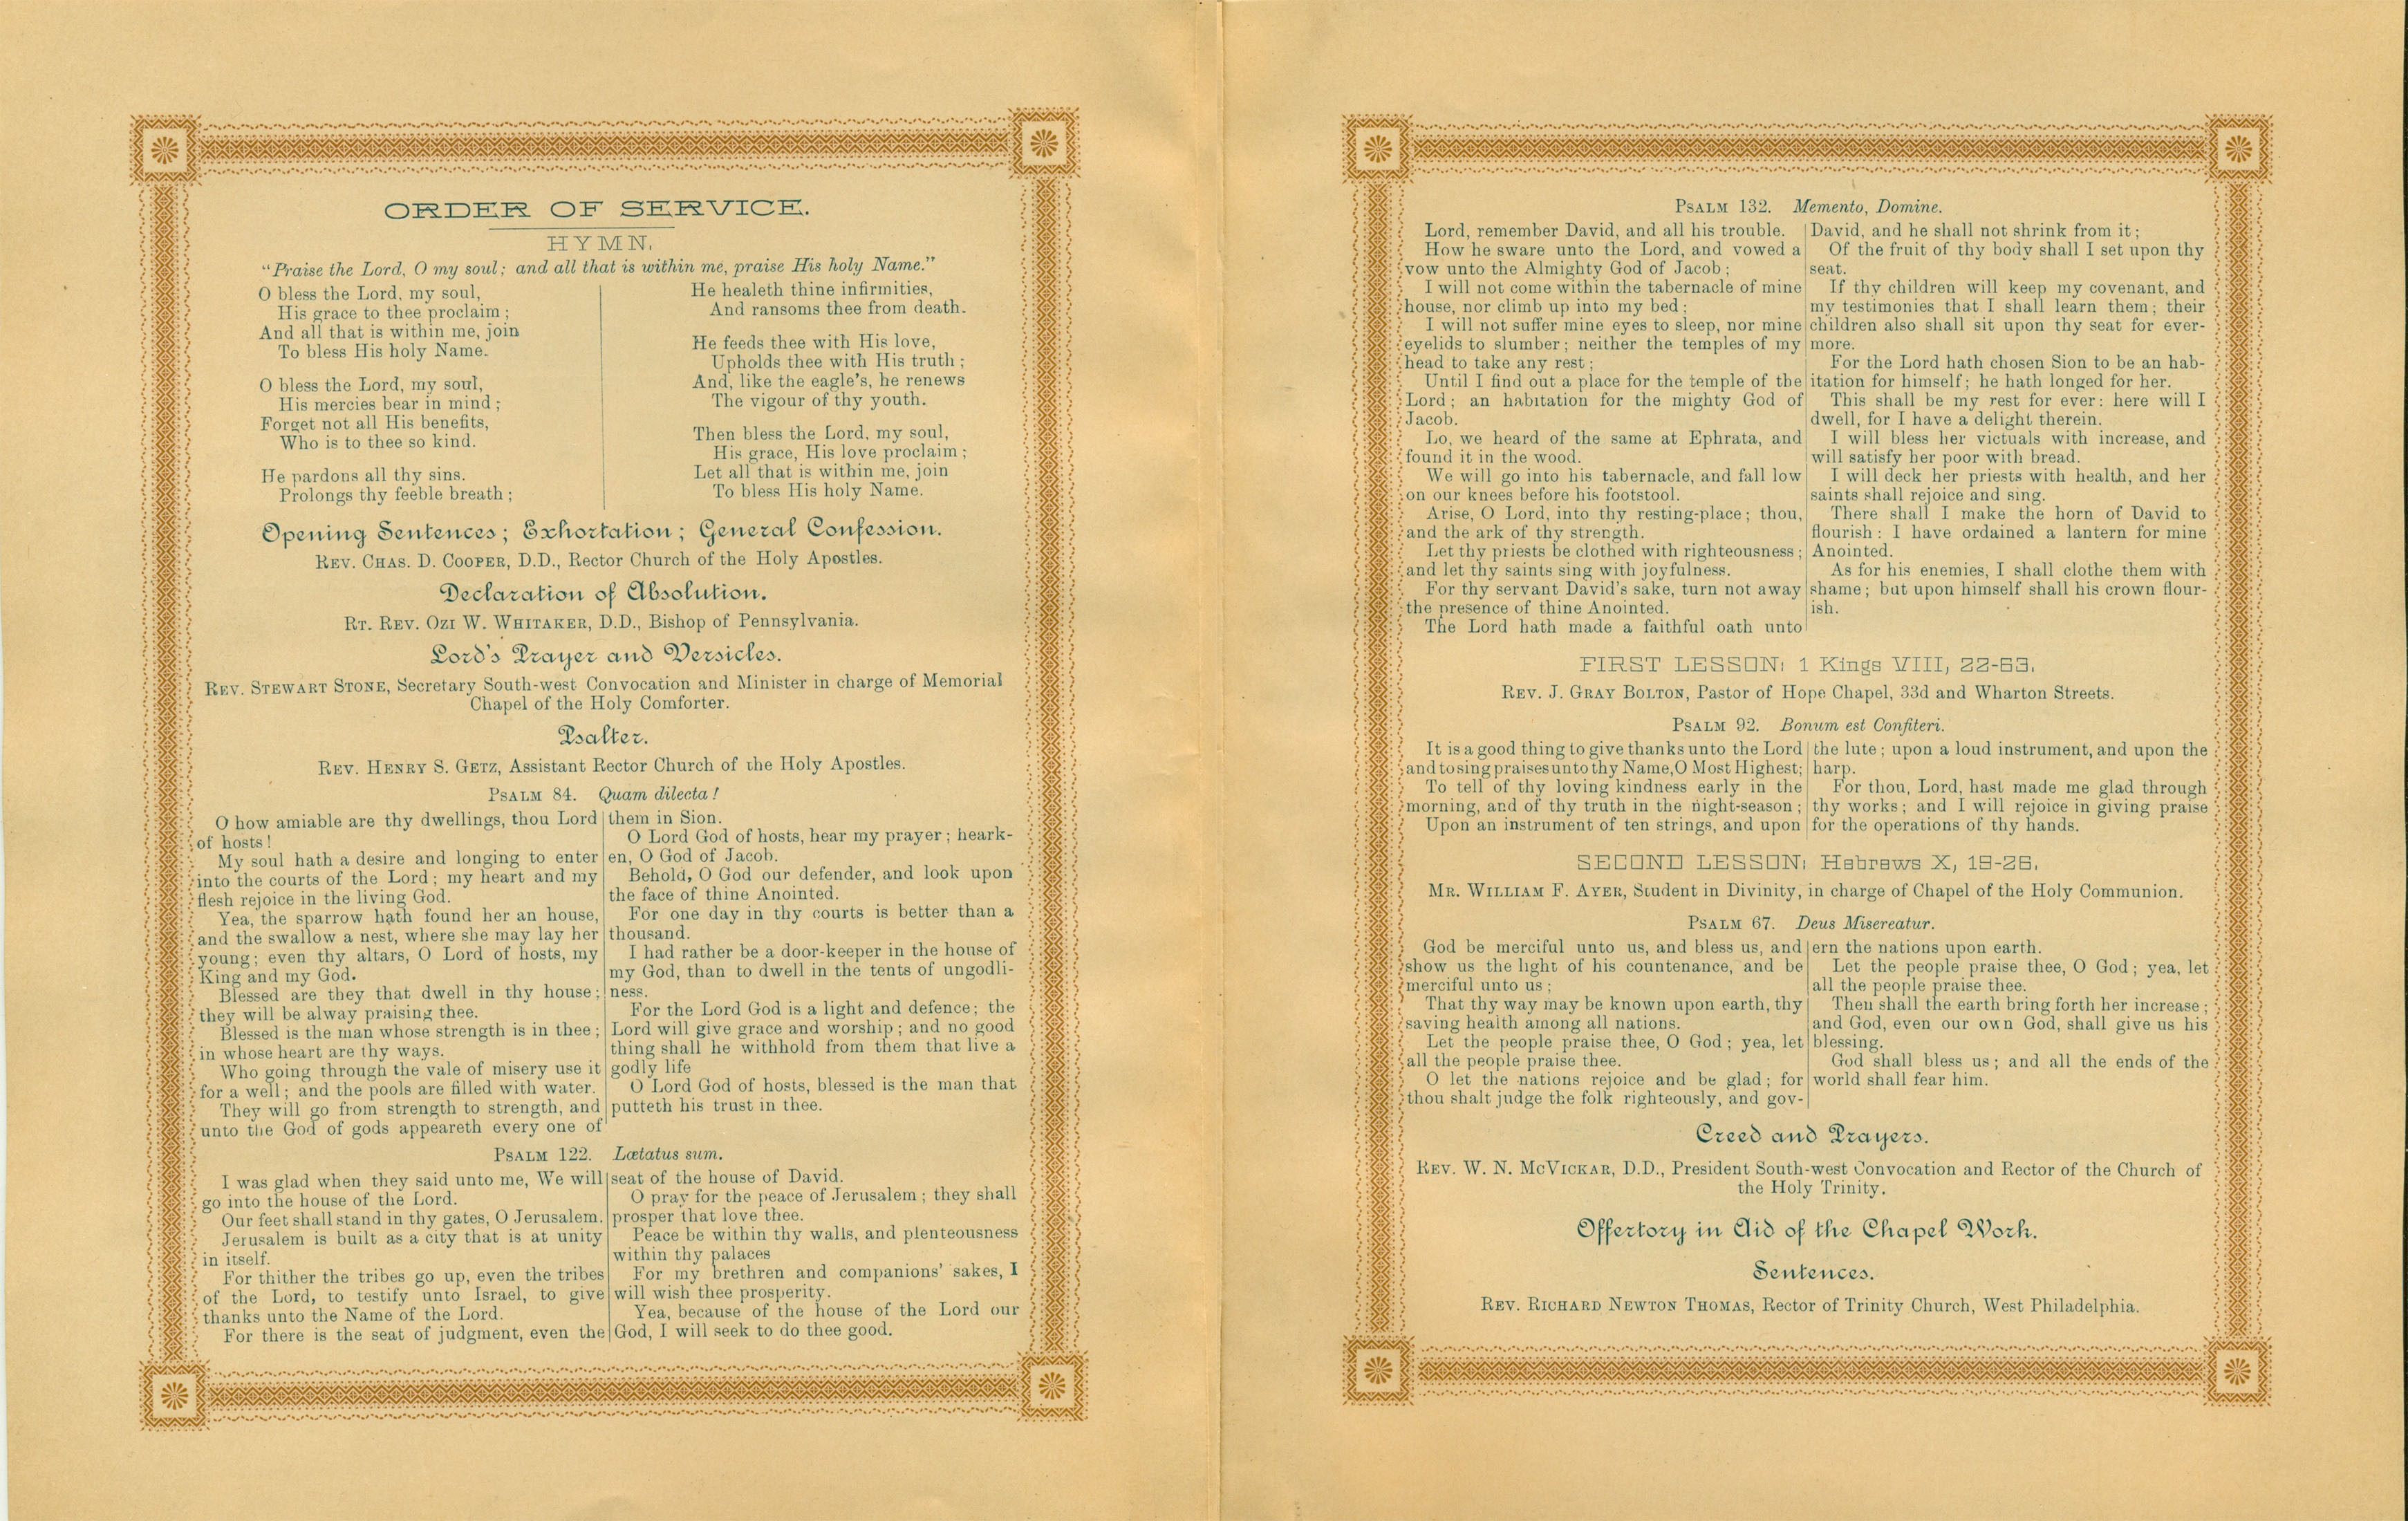 ORDER OF SERVICE.
HYMN.
"Praise the Lord, O my soul; and all that is within me, praise His holy Name."
O bless the Lord, my soul,
His grace to thee proclaim;
And all that is within me, join
To bless His holy Name.
O bless the Lord, my soul,
His mercies bear in mind;
Forget not all His benefits,
Who is to thee so kind.
He pardons all thy sins.
Prolongs thy feeble breath;
He healeth thine infirmities,
And ransoms thee from death.
He feeds thee with His love,
Upholds thee with His truth;
And, like the eagle's, he renews
The vigour of thy youth.
Then bless the Lord, my soul,
His grace, His love proclaim;
Let all that is within me, join
To bless His holy Name.
Opening Sentences; Exhortation; General Confession.
REV. CHAS. D. COOPER, D.D., Rector Church of the Holy Apostles.
Declaration of Absolution.
RT. REV. OZI W. WHITAKER, D.D., Bishop of Pennsylvania.
Lord's Prayer and Versicles.
REV. STEWART STONE, Secretary South-west Convocation and Minister in charge of Memorial
Chapel of the Holy Comforter.
Psalter.
REV. HENRY S. GETZ, Assistant Rector Church of the Holy Apostles.
PSALM 84. Quam dilecta!
O how amiable are thy dwellings, thou Lord
of hosts!
My soul hath a desire and longing to enter
into the courts of the Lord; my heart and my
flesh rejoice in the living God.
Yea, the sparrow hath found her an house,
and the swallow a nest, where she may lay her
young; even thy altars, O Lord of hosts, my
King and my God.
Blessed are they that dwell in thy house;
they will be alway praising thee.
Blessed is the man whose strength is in thee;
in whose heart are thy ways.
Who going through the vale of misery use it
for a well; and the pools are filled with water.
They will go from strength to strength, and
unto the God of gods appeareth every one of
them in Sion.
O Lord God of hosts, hear my prayer; heark-
en, O God of Jacob.
Behold, O God our defender, and look upon
the face of thine Anointed.
For one day in thy courts is better than a
thousand.
I had rather be a door-keeper in the house of
my God, than to dwell in the tents of ungodli-
ness.
For the Lord God is a light and defence; the
Lord will give grace and worship; and no good
thing shall he withhold from them that live a
godly life
O Lord God of hosts, blessed is the man that
putteth his trust in thee.
PSALM 122. Lætatus sum.
I was glad when they said unto me, We will
go into the house of the Lord.
Our feet shall stand in thy gates, O Jerusalem.
Jerusalem is built as a city that is at unity
in itself.
For thither the tribes go up, even the tribes
of the Lord, to testify unto Israel, to give
thanks unto the Name of the Lord.
For there is the seat of judgment, even the
seat of the house of David.
O pray for the peace of Jerusalem; they shall
prosper that love thee.
Peace be within thy walls, and plenteousness
within thy palaces
For my brethren and companions' sakes, I
will wish thee prosperity.
Yea, because of the house of the Lord our
God, I will seek to do thee good.
PSALM 132. Memento, Domine.
Lord, remember David, and all his trouble.
How he sware unto the Lord, and vowed a
vow unto the Almighty God of Jacob;
I will not come within the tabernacle of mine
house, nor climb up into my bed;
I will not suffer mine eyes to sleep, nor mine
eyelids to slumber; neither the temples of my
head to take any rest;
Until I find out a place for the temple of the
Lord; an habitation for the mighty God of
Jacob.
Lo, we heard of the same at Ephrata, and
found it in the wood.
We will go into his tabernacle, and fall low
on our knees before his footstool.
Arise, O Lord, into thy resting-place; thou,
and the ark of thy strength.
Let thy priests be clothed with righteousness;
and let thy saints sing with joyfulness.
For thy servant David's sake, turn not away
the presence of thine Anointed.
The Lord hath made a faithful oath unto
David, and he shall not shrink from it;
Of the fruit of thy body shall I set upon thy
seat.
If thy children will keep my covenant, and
my testimonies that I shall learn them; their
children also shall sit upon thy seat for ever-
more.
For the Lord hath chosen Sion to be an hab-
itation for himself; he hath longed for her.
This shall be my rest for ever: here will I
dwell, for I have a delight therein.
I will bless her victuals with increase, and
will satisfy her poor with bread.
I will deck her priests with health, and her
saints shall rejoice and sing.
There shall I make the horn of David to
flourish: I have ordained a lantern for mine
Anointed.
As for his enemies, I shall clothe them with
shame; but upon himself shall his crown flour-
ish.
FIRST LESSON: 1 Kings VIII, 22-63.
REV. J. GRAY BOLTON, Pastor of Hope Chapel, 33d and Wharton Streets.
PSALM 92. Bonum est Confiteri.
It is a good thing to give thanks unto the Lord
and to sing praises unto thy Name, O Most Highest;
To tell of thy loving kindness early in the
morning, and of thy truth in the night-season;
Upon an instrument of ten strings, and upon
the lute; upon a loud instrument, and upon the
harp.
For thou, Lord, hast made me glad through
thy works; and I will rejoice in giving praise
for the operations of thy hands.
SECOND LESSON: Hebrews X, 19-26.
MR. WILLIAM F. AYER, Student in Divinity, in charge of Chapel of the Holy Communion.
PSALM 67. Deus Misereatur.
God be merciful unto us, and bless us, and
show us the light of his countenance, and be
merciful unto us;
That thy way may be known upon earth, thy
saving health among all nations.
Let the people praise thee, O God; yea, let
all the people praise thee.
O let the nations rejoice and be glad; for
thou shalt judge the folk righteously, and gov-
ern the nations upon earth.
Let the people praise thee, O God; yea, let
all the people praise thee.
Then shall the earth bring forth her increase;
and God, even our own God, shall give us his
blessing.
God shall bless us; and all the ends of the
world shall fear him.
Creed and Prayers.
REV. W. N. MCVICKAR, D.D., President South-west Convocation and Rector of the Church of
the Holy Trinity.
Offertory in Aid of the Chapel Work.
Sentences.
REV. RICHARD NEWTON THOMAS, Rector of Trinity Church, West Philadelphia.